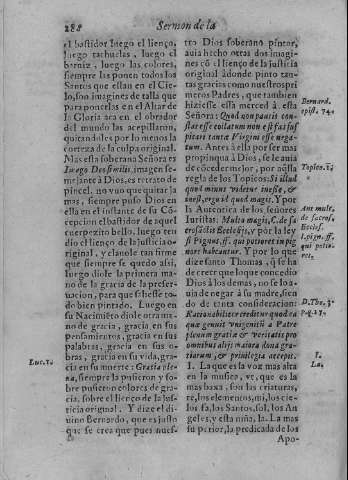 282
Sermon de la
el bastidor luego el lienço,
luego tachuelas, luego el
barniz, luego las colores,
siempre las ponen todos los
Santos que estan en el Cie-
lo, son imagines de talla que
para ponerlas en el Altar de
la Gloria aca en el obrador
del mundo las acepillaron,
quitandoles por lo menos la
corteza de la culpa original.
Mas esta soberana Señora es
imagen se-
mejante à Dios, es retrato de
pincel, no vuo que quitar ja
mas, siempre puso Dios en
ella en el instante de su Có-
cepcion el bastidor de aquel
cuerpezito bello, luego ten
dio el lienço de la justicia o-
riginal, y clauole tan firme
que siempre se quedo assi,
luego diole la primera ma-
no de la gracia de la prefer-
uacion, para que saliesse to-
do bien pintado. Luego en
su Nacimiéto diole otra ma
no de gracia, gracia en sus
pensamientos, gracia en sus
palabras, gracia en sus o-
bras, gracia en su vida, gra-
cia en su muerte: Gratia ple-
na, siempre la pusieron y so-
bre pusieron colores de gra-
cia, sobre el lienço de la Ius-
ticia original. Y dize el di-
uino Bernardo, que es justo
que se crea que pues nues-
Luc. 1.
tro Dios soberano pintor,
auia hecho otras dos imagi-
nes có el lienço de la justicia
original adonde pinto tan-
tas gracias como nuestros pri
meros Padres, que tambien
hiziesse essa merced à esta
Señora: Quod non paucis con-
stat esse collatum non est fas sus
pitari tantæ Virgini esse nega-
tum. Antes à ella por ser mas
propinqua à Dios, se le auia
de cóceder mejor, por aquella
regla de los Topicos: Si illud
quod minus videtur inesse, &
inest, ergo id quod magis. Y por
la Autentica de los señores
Iuristas: Multo magis, C. de sa
crosanctis Ecclesijs, y por la ley
si Pignus, ff. qui potiores in pig
nore habeantur. Y por lo que
dize santo Thomas, q̃ se ha
de creer que lo que concedio
Dios à los demas, no se lo a-
uia de negar à su madre, sien
do de tanta consideracion:
Rationabiliter creditur quod ea
quæ genuit vnigenitũ a Patre
plenum gratiæ & veritatis præ
omnibus alijs maiora dona gra-
tiarum, & priuilegia accepit.
1. La que es la voz mas alta
en la musica, vt, que es la
mas baxa, son las criaturas,
re, los elementos, mi, los cie-
los fa, los Santos, sol, los An
geles, y esta niña, la. La mas
superior, la predicada de los
Apo-
Bernard.
epist. 174.
Topico. 2.
Aut. mult.
de sacros.
Eccles.
l. pign. ff.
qui potio-
res.
D. Tho. 3.
p. q. 27.